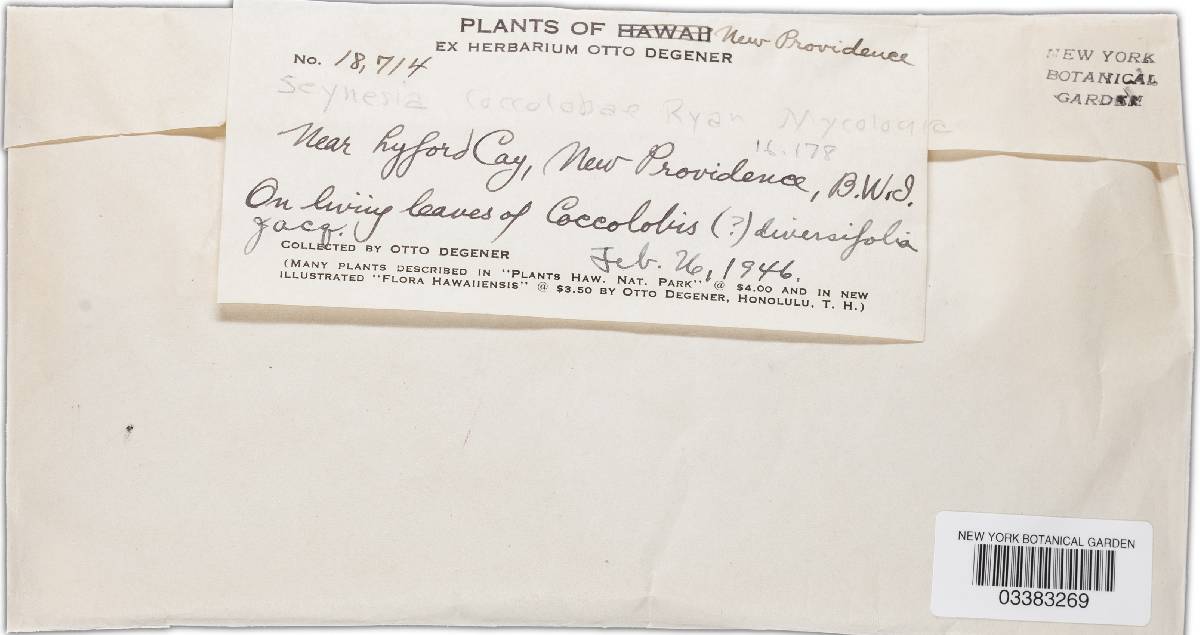 PLANTS OF HAWAII New Providence
EX HERBARIUM OTTO DEGENER
No. 18,714
Seynesia Coccolobae Ryan Mycologia
16.178
Near Lyford Cay, New Providence, B.W.I.
On living leaves of Coccolobis (?) diversifolia
Jacq.
COLLECTED BY OTTO DEGENER
Feb. 26, 1946.
(MANY PLANTS DESCRIBED IN "PLANTS HAW. NAT. PARK" @ $4.00 AND IN NEW
ILLUSTRATED "FLORA HAWAIIENSIS" @ $3.50 BY OTTO DEGENER, HONOLULU, T. H.)
NEW YORK
BOTANICAL
GARDEN
NEW YORK BOTANICAL GARDEN
03383269